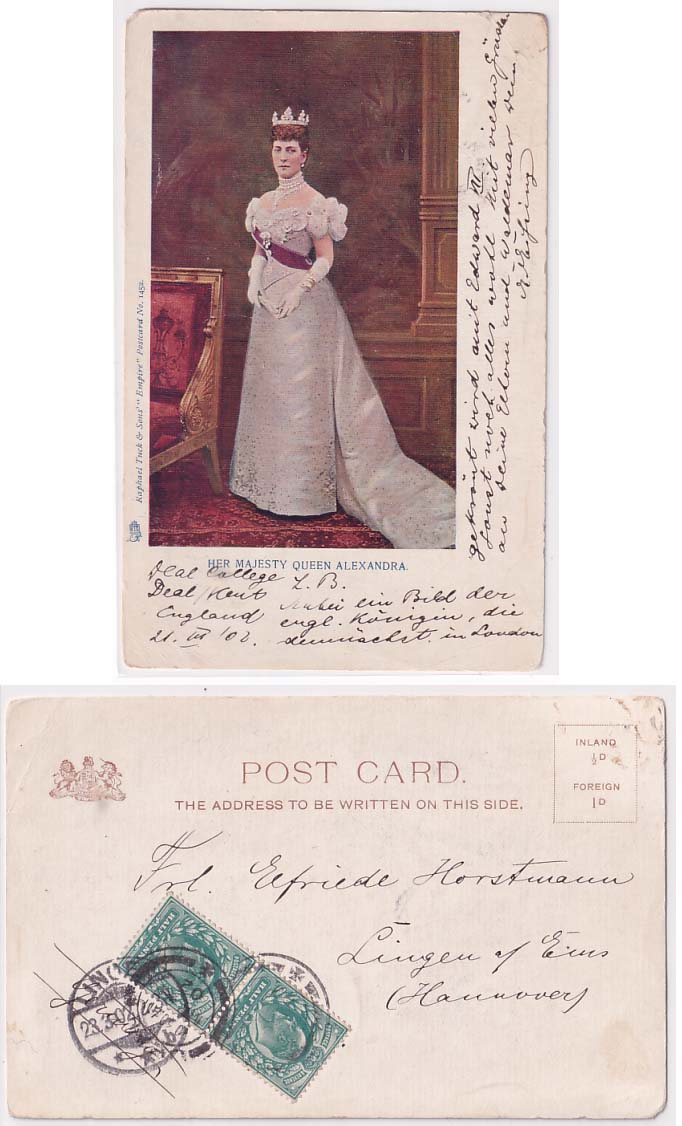 Raphael Tuck & Sons' "Empire" Postcard No. 1452.
HER MAJESTY QUEEN ALEXANDRA.
Deal College
Deal / Kent
England
21. III '02.
L. B.
Anbei ein Bild der
engl. Königin, die
demnächst in London
gekrönt wird mit Edward VII.
Sonst noch alles wohl. Mit vielen Grüßen
an Deine Eltern und Waldemar Dein
POST CARD.
THE ADDRESS TO BE WRITTEN ON THIS SIDE.
INLAND
½D
FOREIGN
1D
Frl. Elfriede Horstmann
Lingen a/ Ems
(Hannover)
HALF PENNY
HALF PENNY
LINGEN
23.3.02